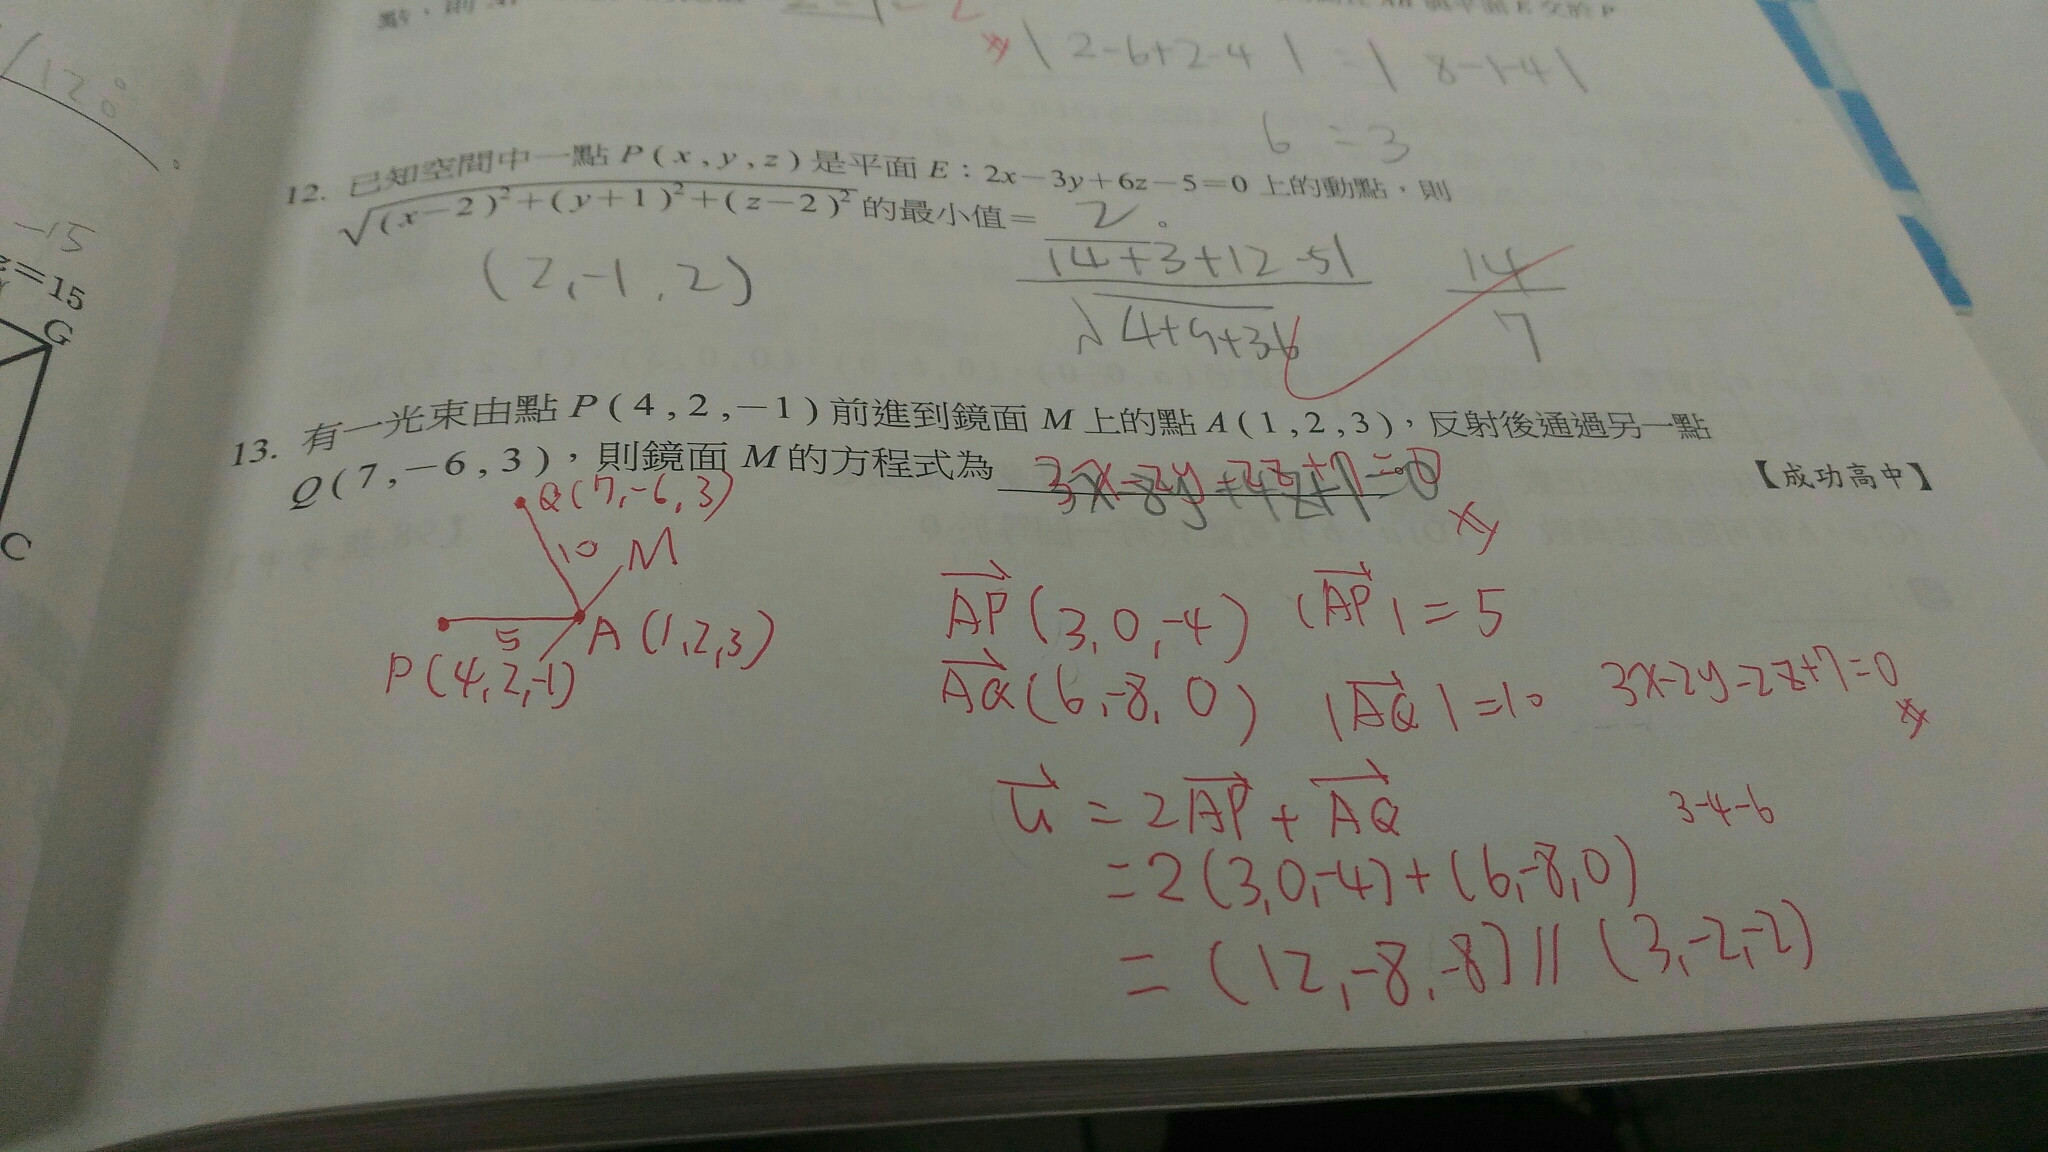 | 2-6+2-4 | = | 8-1-4 |
6 = 3
120°
-15
z=15
G
C
12. 已知空間中一點 P(x,y,z) 是平面 E：2x-3y+6z-5=0 上的動點，則
√(x-2)²+(y+1)²+(z-2)² 的最小值= 2 。
(2,-1,2)
|4+3+12-5|
√4+9+36
14
7
13. 有一光束由點 P(4,2,-1) 前進到鏡面 M 上的點 A(1,2,3)，反射後通過另一點
Q(7,-6,3)，則鏡面 M 的方程式為
【成功高中】
Q(7,-6,3)
10 M
5 A(1,2,3)
P(4,2,-1)
AP(3,0,-4) |AP|=5
AQ(6,-8,0) |AQ|=10
3x-2y-2z+7=0
u = 2AP + AQ
3-4-6
=2(3,0,-4)+(6,-8,0)
= (12,-8,-8) // (3,-2,-2)